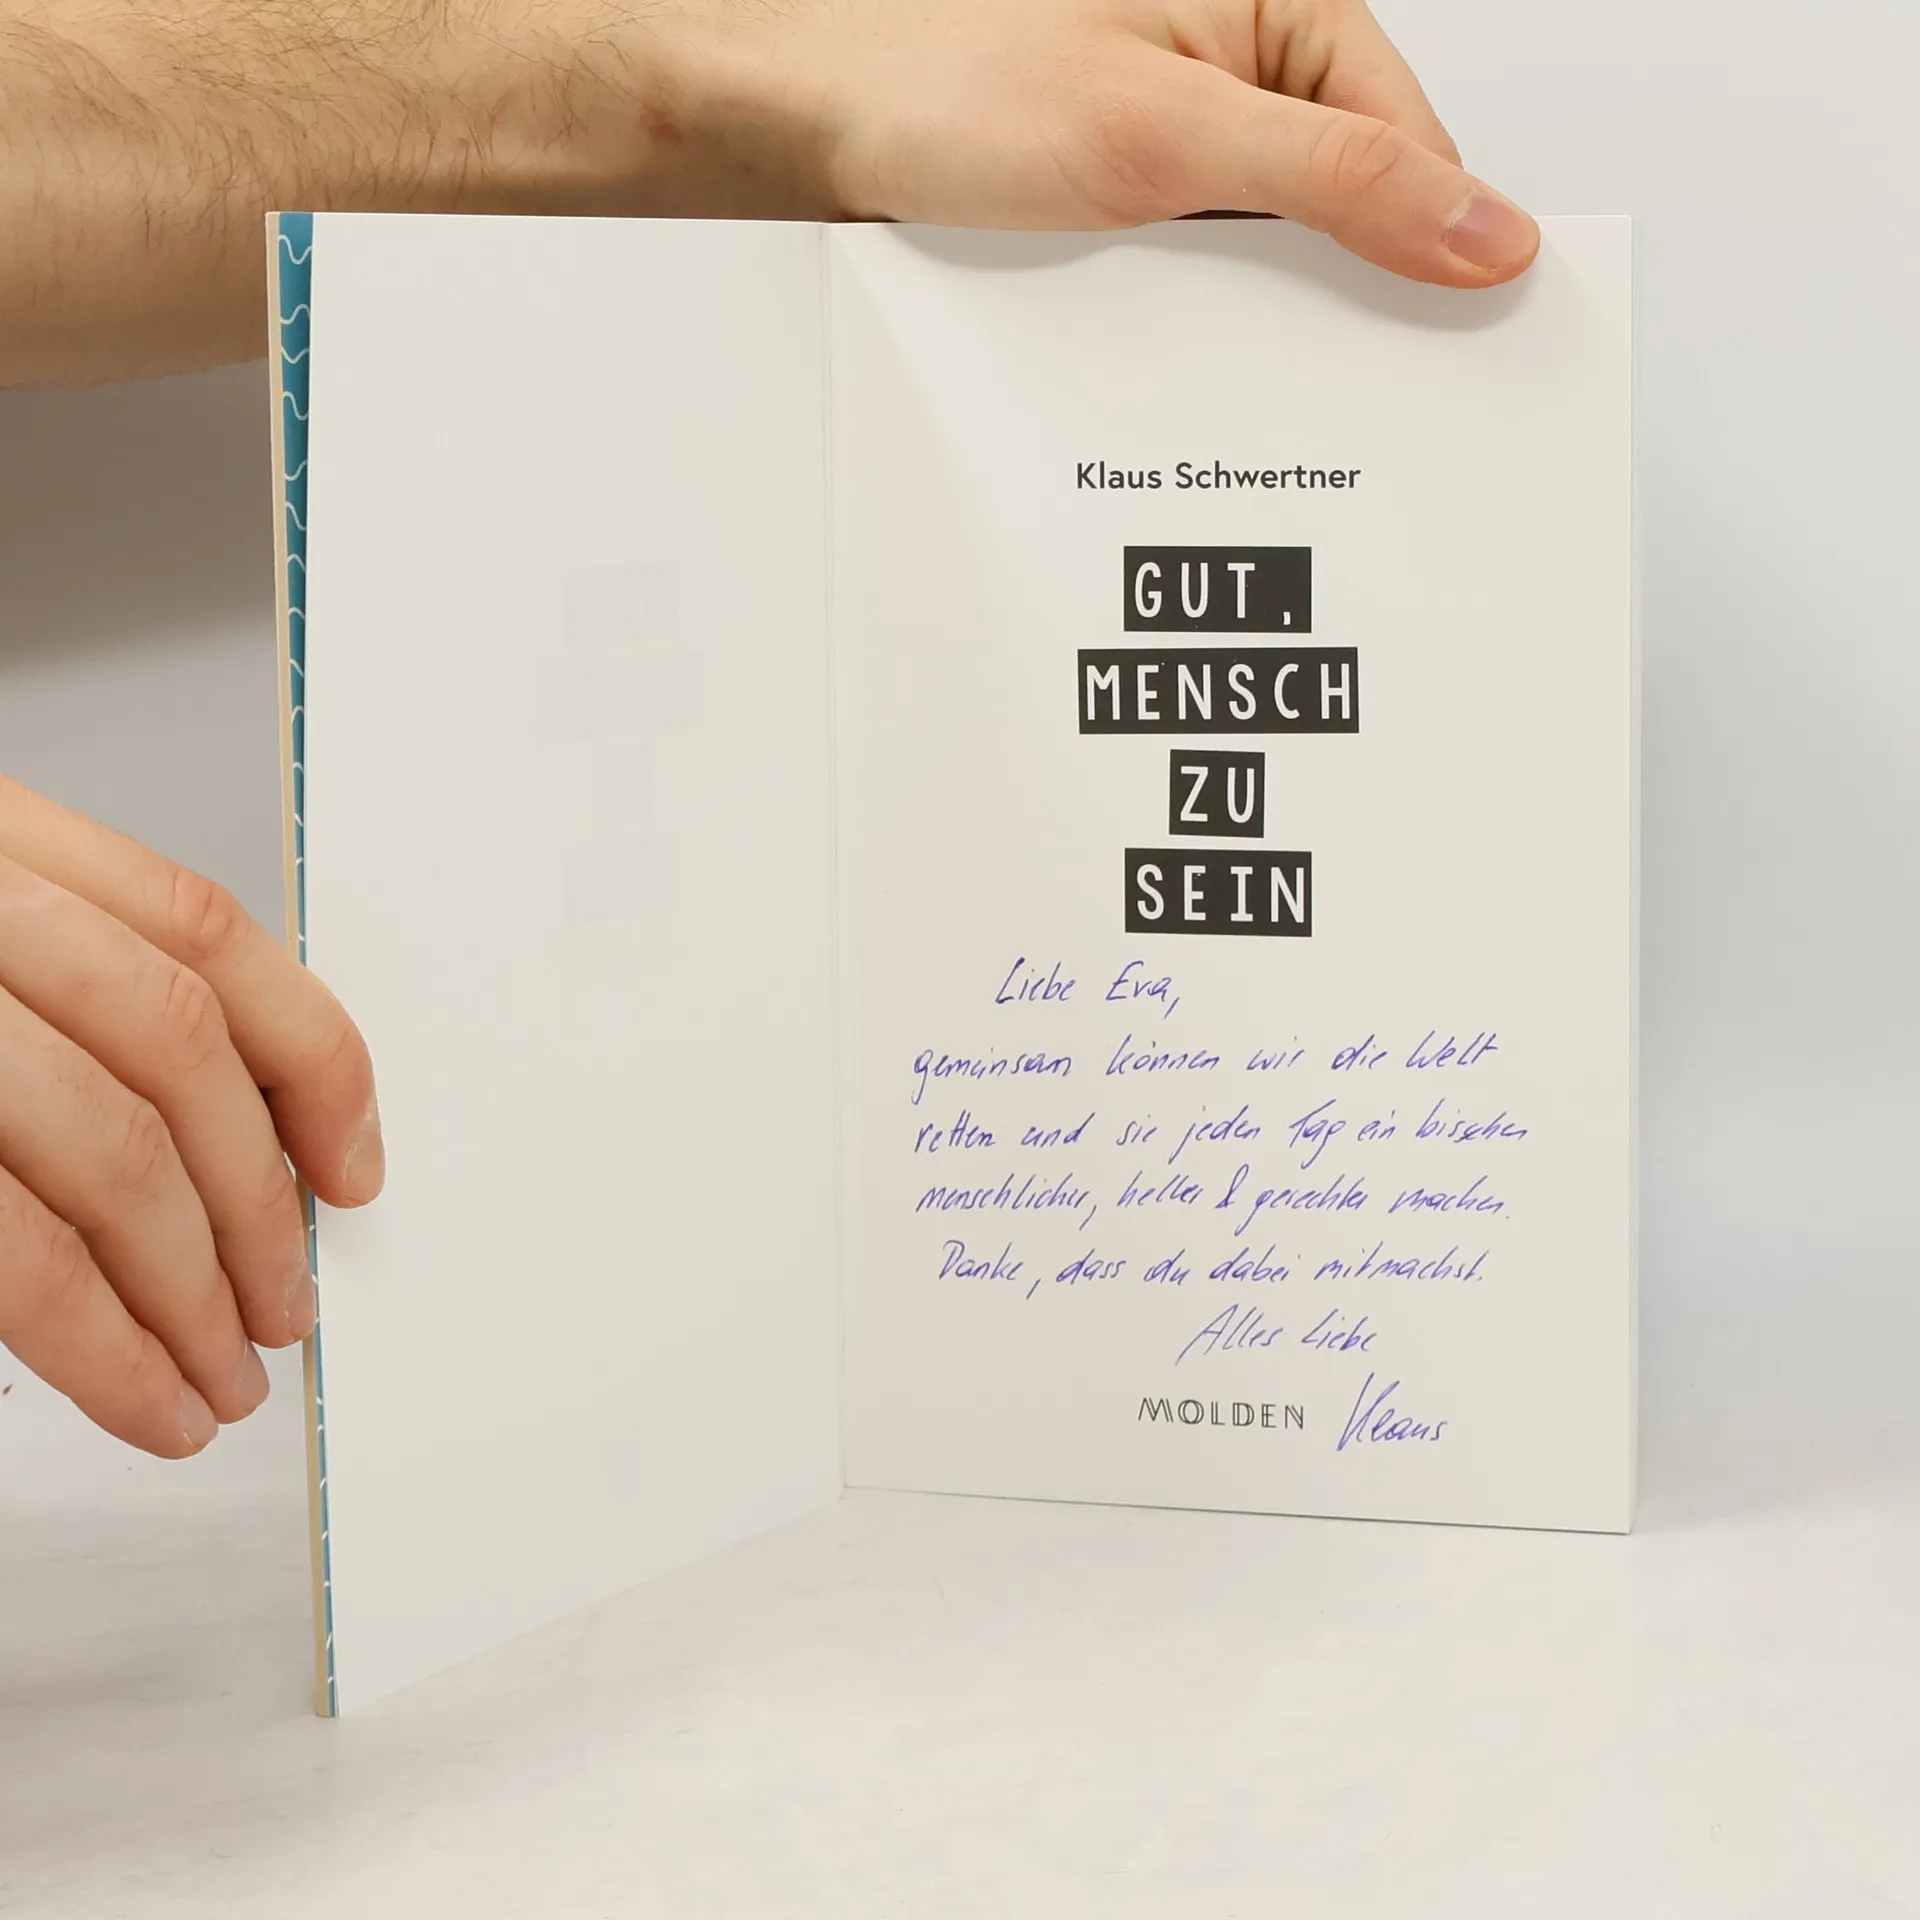 Klaus Schwertner
GUT,
MENSCH
ZU
SEIN
Liebe Eva,
gemeinsam können wir die Welt
retten und sie jeden Tag ein bisschen
menschlicher, heller & gerechter machen.
Danke, dass du dabei mitmachst.
Alles Liebe
MOLDEN Klaus